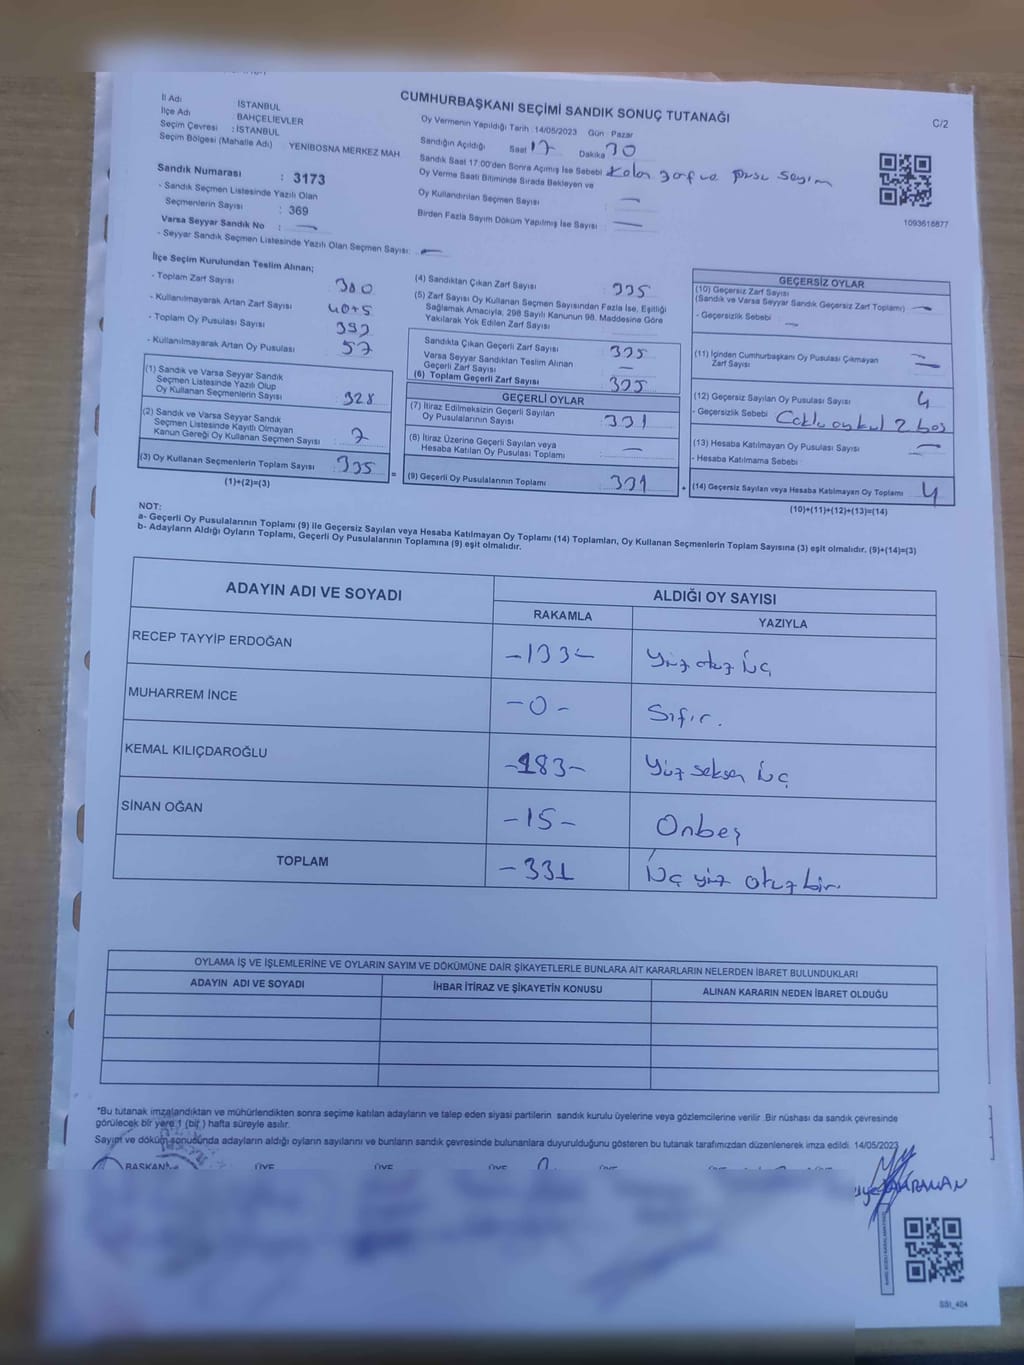 CUMHURBAŞKANI SEÇİMİ SANDIK SONUÇ TUTANAĞI
C/2
İl Adı : İSTANBUL
İlçe Adı : BAHÇELİEVLER
Seçim Çevresi : İSTANBUL
Seçim Bölgesi (Mahalle Adı) : YENİBOSNA MERKEZ MAH
Sandık Numarası : 3173
- Sandık Seçmen Listesinde Yazılı Olan
Seçmenlerin Sayısı : 369
Varsa Seyyar Sandık No : —
- Seyyar Sandık Seçmen Listesinde Yazılı Olan Seçmen Sayısı: —
Oy Vermenin Yapıldığı Tarih : 14/05/2023 Gün : Pazar
Sandığın Açıldığı Saat 17 Dakika 30
Sandık Saat 17:00'den Sonra Açılmış İse Sebebi Kalan zarf ve pusu sayım
Oy Verme Saati Bitiminde Sırada Bekleyen ve
Oy Kullandırılan Seçmen Sayısı : —
Birden Fazla Sayım Döküm Yapılmış İse Sayısı : —
1093618877
İlçe Seçim Kurulundan Teslim Alınan;
- Toplam Zarf Sayısı 380
- Kullanılmayarak Artan Zarf Sayısı 40+5
- Toplam Oy Pusulası Sayısı 392
- Kullanılmayarak Artan Oy Pusulası 57
(1) Sandık ve Varsa Seyyar Sandık
Seçmen Listesinde Yazılı Olup
Oy Kullanan Seçmenlerin Sayısı 328
(2) Sandık ve Varsa Seyyar Sandık
Seçmen Listesinde Kayıtlı Olmayan
Kanun Gereği Oy Kullanan Seçmen Sayısı 7
(3) Oy Kullanan Seçmenlerin Toplam Sayısı 335 =
(1)+(2)=(3)
(4) Sandıktan Çıkan Zarf Sayısı 335
(5) Zarf Sayısı Oy Kullanan Seçmen Sayısından Fazla İse, Eşitliği
Sağlamak Amacıyla, 298 Sayılı Kanunun 98. Maddesine Göre
Yakılarak Yok Edilen Zarf Sayısı
Sandıkta Çıkan Geçerli Zarf Sayısı 335
Varsa Seyyar Sandıktan Teslim Alınan
Geçerli Zarf Sayısı —
(6) Toplam Geçerli Zarf Sayısı 335
GEÇERLİ OYLAR
(7) İtiraz Edilmeksizin Geçerli Sayılan
Oy Pusulalarının Sayısı 331
(8) İtiraz Üzerine Geçerli Sayılan veya
Hesaba Katılan Oy Pusulası Toplamı —
(9) Geçerli Oy Pusulalarının Toplamı 331 +
GEÇERSİZ OYLAR
(10) Geçersiz Zarf Sayısı
(Sandık ve Varsa Seyyar Sandık Geçersiz Zarf Toplamı) —
- Geçersizlik Sebebi : —
(11) İçinden Cumhurbaşkanı Oy Pusulası Çıkmayan
Zarf Sayısı —
(12) Geçersiz Sayılan Oy Pusulası Sayısı 4
- Geçersizlik Sebebi 2 boş
(13) Hesaba Katılmayan Oy Pusulası Sayısı —
- Hesaba Katılmama Sebebi
(14) Geçersiz Sayılan veya Hesaba Katılmayan Oy Toplamı 4
(10)+(11)+(12)+(13)=(14)
NOT:
a- Geçerli Oy Pusulalarının Toplamı (9) ile Geçersiz Sayılan veya Hesaba Katılmayan Oy Toplamı (14) Toplamları, Oy Kullanan Seçmenlerin Toplam Sayısına (3) eşit olmalıdır. (9)+(14)=(3)
b- Adayların Aldığı Oyların Toplamı, Geçerli Oy Pusulalarının Toplamına (9) eşit olmalıdır.
ADAYIN ADI VE SOYADI
ALDIĞI OY SAYISI
RAKAMLA YAZIYLA
RECEP TAYYİP ERDOĞAN -133- Yüz otuz üç
MUHARREM İNCE -0- Sıfır.
KEMAL KILIÇDAROĞLU -183- Yüz seksen üç
SİNAN OĞAN -15- Onbeş
TOPLAM -331 Üç yüz otuz bir.
OYLAMA İŞ VE İŞLEMLERİNE VE OYLARIN SAYIM VE DÖKÜMÜNE DAİR ŞİKAYETLERLE BUNLARA AİT KARARLARIN NELERDEN İBARET BULUNDUKLARI
ADAYIN ADI VE SOYADI İHBAR İTİRAZ VE ŞİKAYETİN KONUSU ALINAN KARARIN NEDEN İBARET OLDUĞU
*Bu tutanak imzalandıktan ve mühürlendikten sonra seçime katılan adayların ve talep eden siyasi partilerin sandık kurulu üyelerine veya gözlemcilerine verilir .Bir nüshası da sandık çevresinde
görülecek bir yere 1 (bir) hafta süreyle asılır.
Sayım ve döküm sonucunda adayların aldığı oyların sayılarını ve bunların sandık çevresinde bulunanlara duyurulduğunu gösteren bu tutanak tarafımızdan düzenlenerek imza edildi. 14/05/2023
BAŞKAN ÜYE ÜYE ÜYE ÜYE
SSI_404